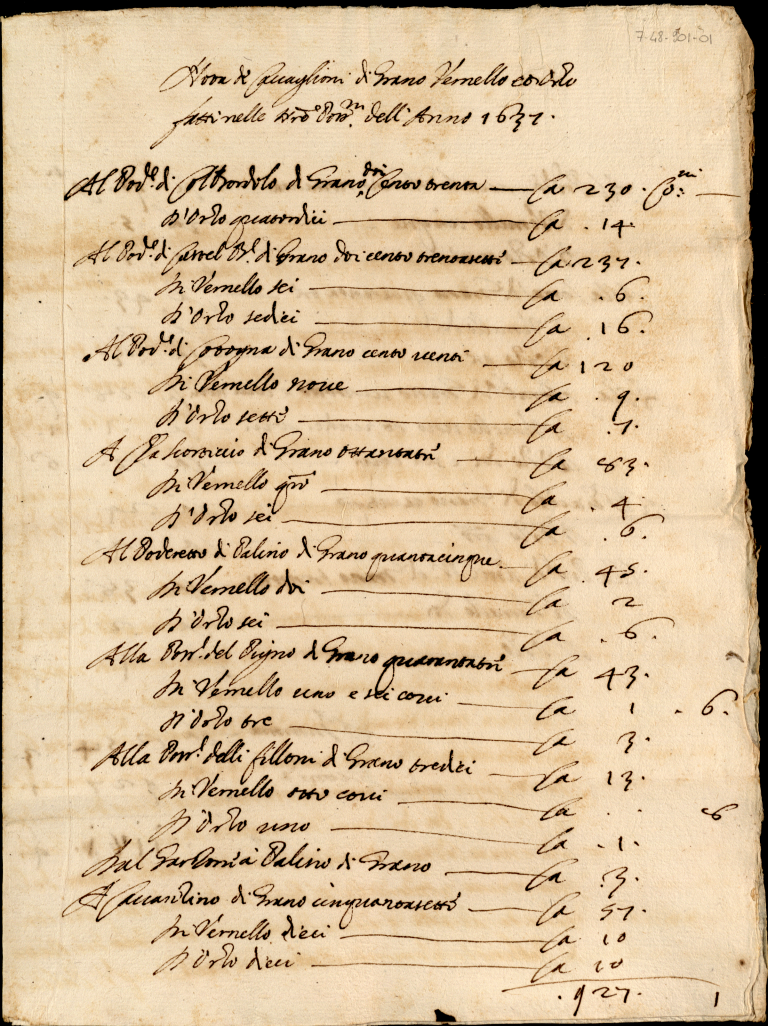 7-48-901-01
Nota de Cavaglioni di Grano Vernello et Orzo
fatti nelle nre Poss.ni dell'Anno 1637.
Al Pod.e di Colbordolo di Grano doi cento trenta — Ca 230. Co.ni —
D'Orzo quatordici — Ca . 14
Al Pod.e di Castel di Grano doi cento trentasetti — Ca 237.
Di Vernello sei — Ca . 6.
D'Orzo sedici — Ca . 16.
Al Pod.e di di Grano cento venti — Ca 120
Di Vernello nove — Ca . 9.
D'Orzo setti — Ca . 7.
A di Grano ottantatrí — Ca 83.
Di Vernello qro — Ca . 4
D'Orzo sei — Ca . 6.
Al Poderetto di Palino di Grano quarantacinque — Ca . 45.
Di Vernello doi — Ca 2
D'Orzo sei — Ca . 6.
Alla Poss.e del Pigno di Grano quarantatrí — Ca 43.
Di Vernello uno e sei covi — Ca 1 . 6.
D'Orzo tre — Ca 3.
Alla Poss.e delli filloni di Grano tredici — Ca 13.
Di Vernello otto covi — Ca . . 8
D'Orzo uno — Ca . 1.
Dal à Palino di Grano — Ca . 3.
A di Grano cinquantasetti — Ca 57.
Di Vernello dieci — Ca 10
D'Orzo dieci — Ca 10
. 927. 1